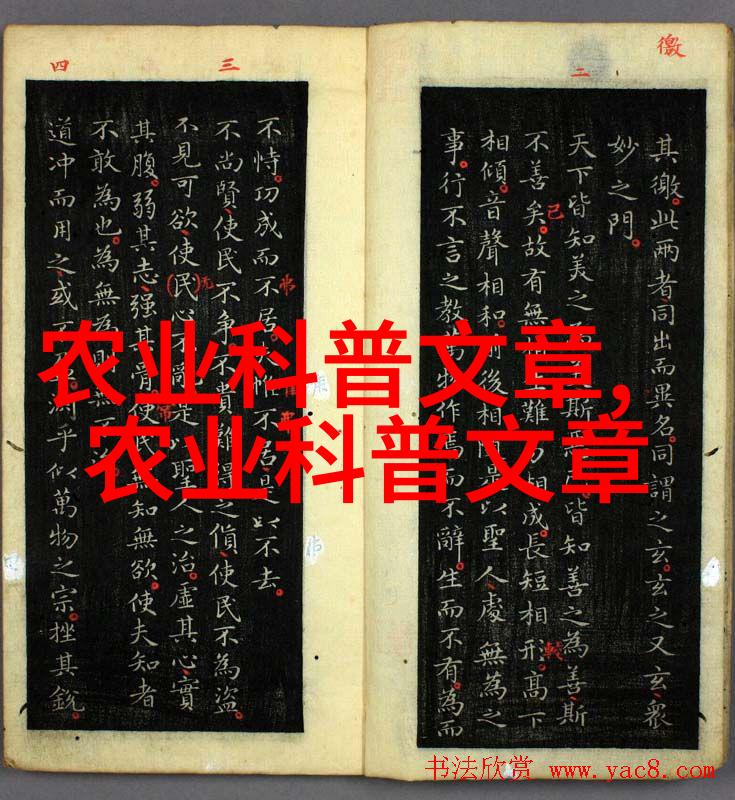 徼
二
其徼。此两者同出而異名。同謂之玄。玄之又玄。衆
妙之門。
天下皆知美之斯皆知善之為善斯
不善矣。故有無難相成。長短相形。高下
相傾。音聲相和。前後相是以聖人處無為之
事。行不言之教。萬物作焉而不辭。生而不有。為而
已
較
三
四
不恃。功成而不居。惟不居。是以不去。
不尚賢使民不爭不貴難得之貨使民不為盜。
不見可欲使民心不亂是以聖人之治。虛其心實
其腹。弱其志。强其骨使民無知無欲。使夫知者
不敢為也。為無為則無不
道冲而用之或不乎似萬物之宗。挫其銳。
无
常
农业科普文章,
农业科普文章
书法欣赏 www.yac8.com